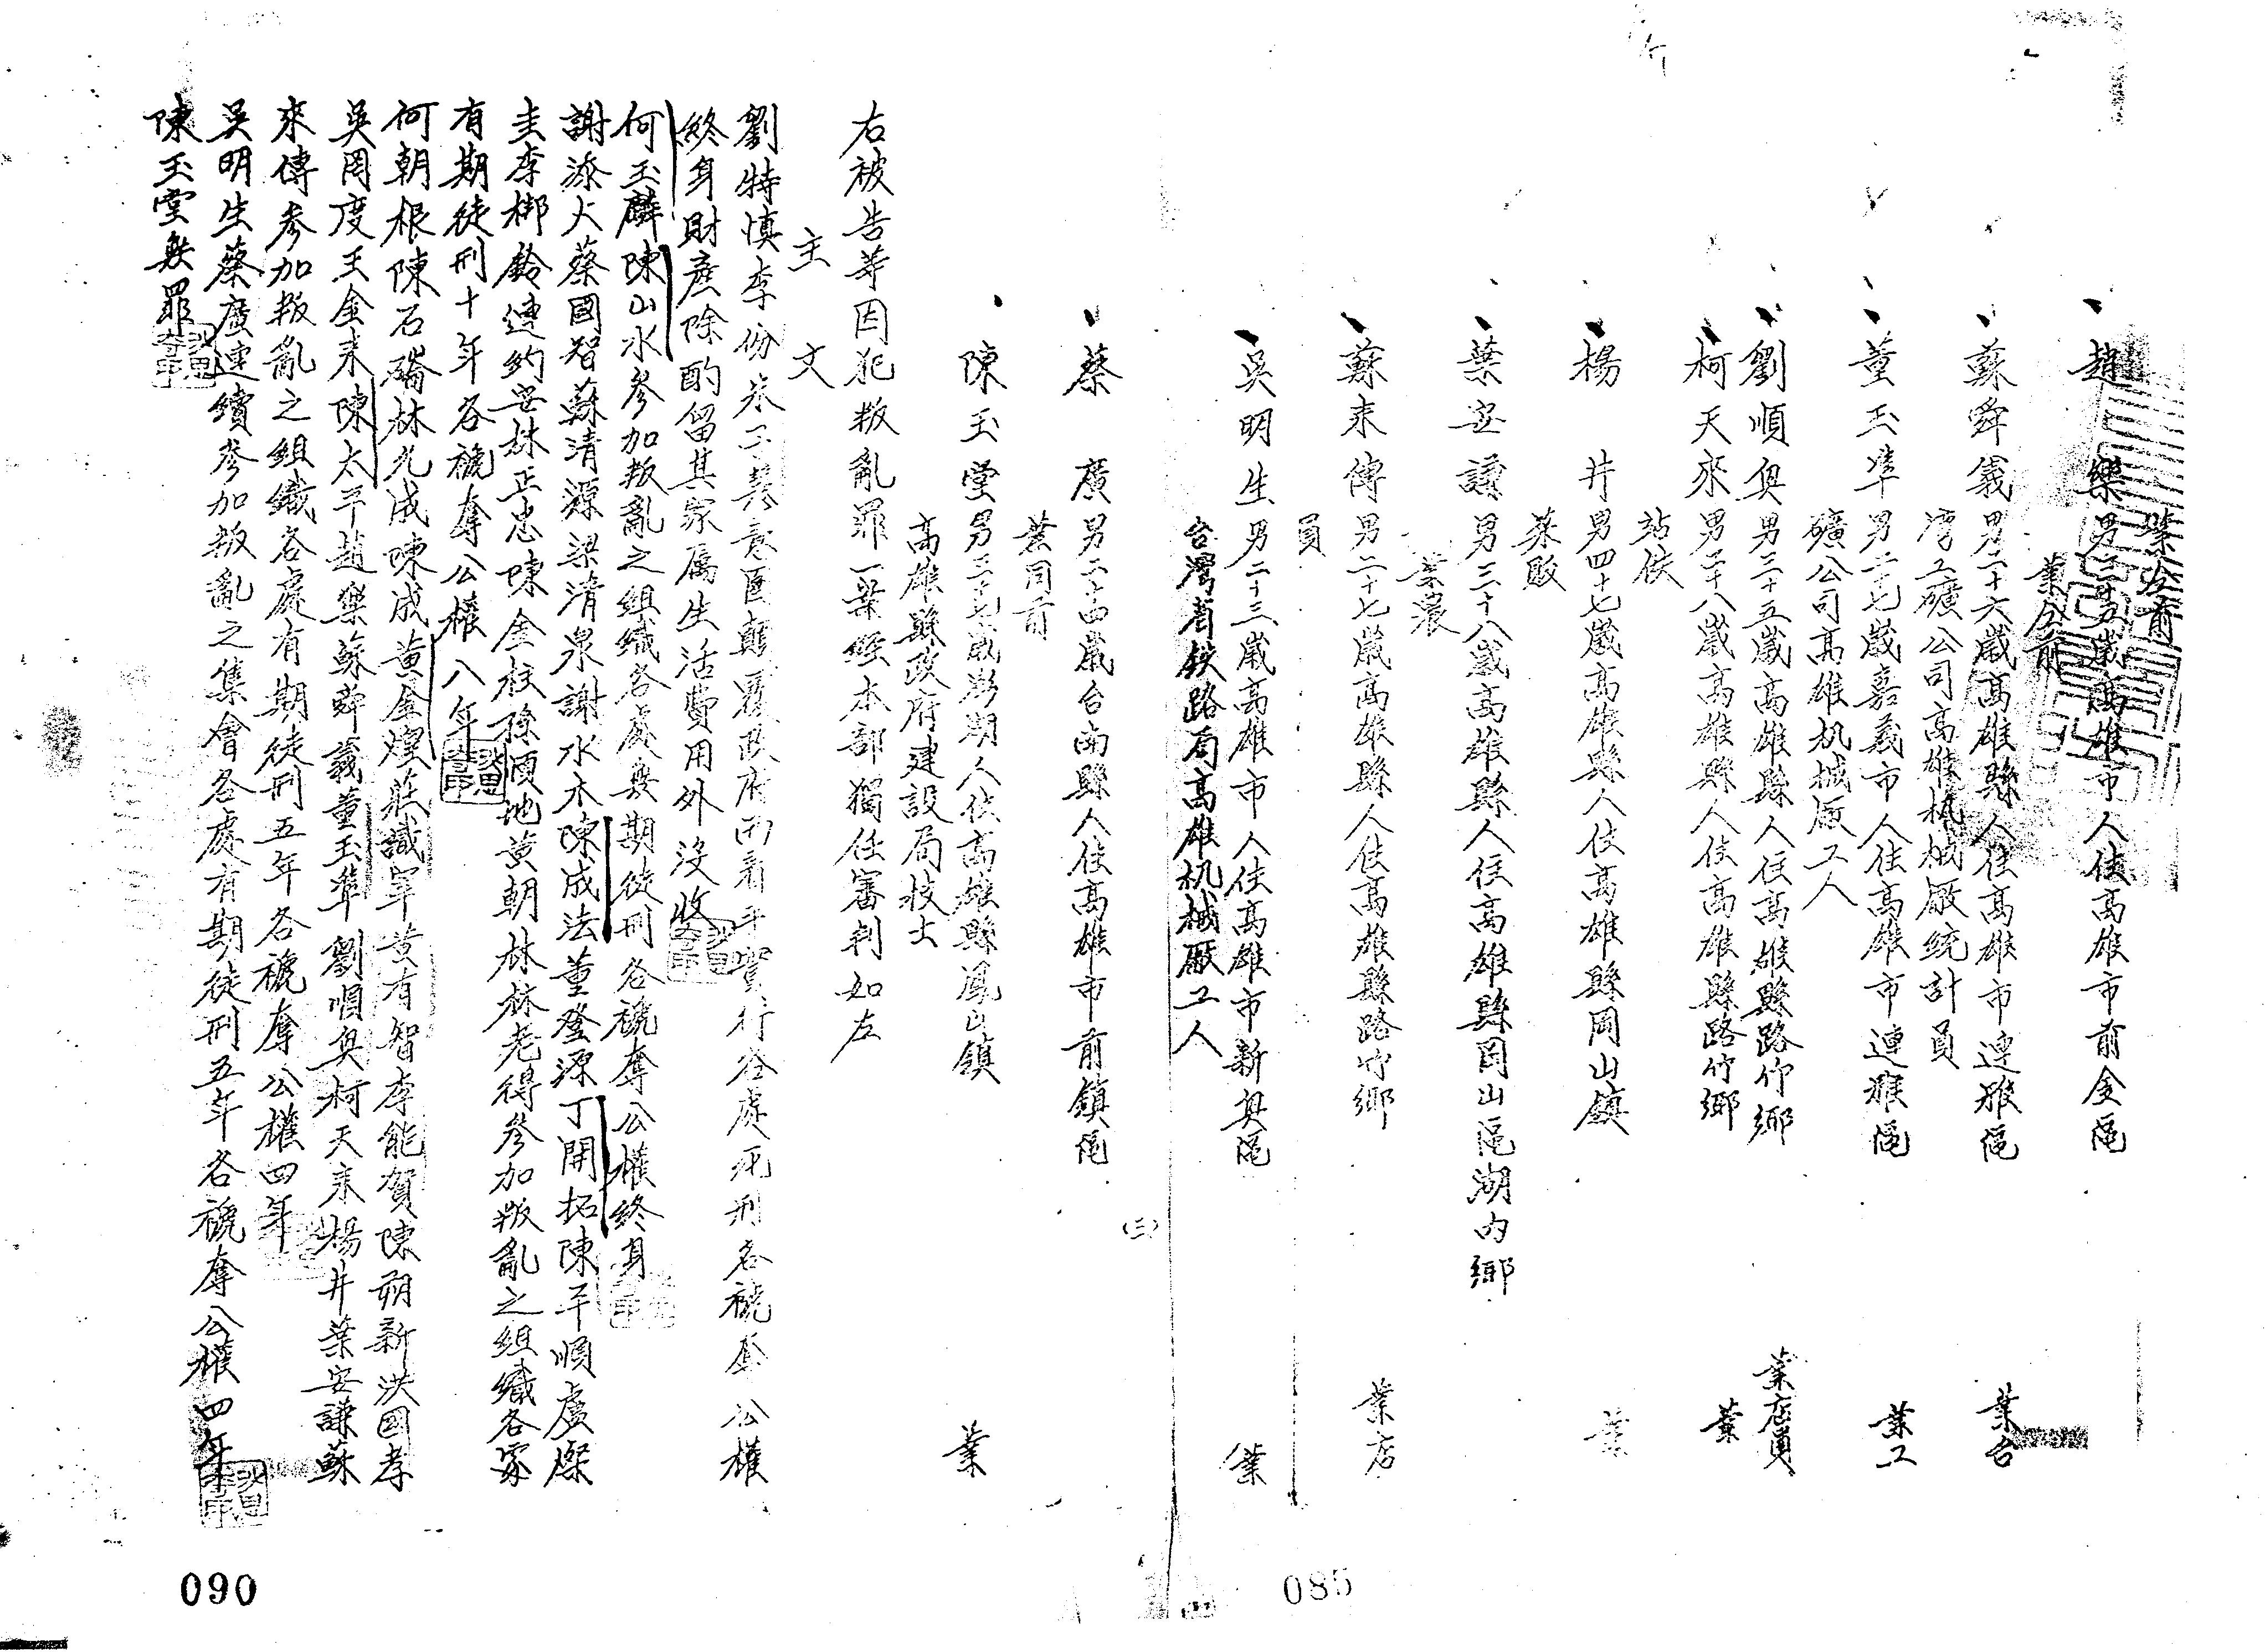 業仝前
趙　樂男三十五歲高雄市人住高雄市前金區
業仝前
蘇舜義男二十六歲高雄縣人住高雄市連雅區　業台
湾工礦公司高雄机械廠統計員
董玉準男二十七歲嘉義市人住高雄市連雅區　業工
礦公司高雄机械廠工人
劉順奐男三十五歲高雄縣人住高雄縣路竹鄉　業店員
柯天來男二十八歲高雄縣人住高雄縣路竹鄉　業
站伕
楊　井男四十七歲高雄縣人住高雄縣岡山鎮　業
菜販
葉安謙男三十八歲高雄縣人住高雄縣岡山區湖內鄉
業農
蘇來傳男二十七歲高雄縣人住高雄縣路竹鄉　業店
員
吳明生男二十三歲高雄市人住高雄市新興區　業
台灣省鉄路局高雄机械廠工人
(三)
蔡　廣男二十四歲台南縣人住高雄市前鎮區
業同前
陳玉堂男三十七歲澎湖人住高雄縣鳳山鎮　業
高雄縣政府建設局技士
右被告等因犯叛亂罪一案經本部獨任審判如左
主　文
劉特慎李份朱子慧意圖顛覆政府而着手實行各處死刑各褫奪公權
終身財產除酌留其家屬生活費用外沒收
何玉麟陳山水參加叛亂之組織各處無期徒刑各褫奪公權終身
謝添火蔡國智蘇清源梁清泉謝水木陳成法董登源丁開拓陳平順盧燦
圭李梆鈴連約安林正忠陳金柱孫順地黃朝林林老得參加叛亂之組織各處
有期徒刑十年各褫奪公權八年
何朝根陳石礄林九成陳成黃金煌莊識宰黃有智李能賀陳朔新洪國孝
吳周度王金來陳太平趙樂蘇舜義董玉準劉順奐柯天來楊井葉安謙蘇
來傳參加叛亂之組織各處有期徒刑五年各褫奪公權四年
吳明生蔡廣連續參加叛亂之集會各處有期徒刑五年各褫奪公權四年
陳玉堂無罪
090
085